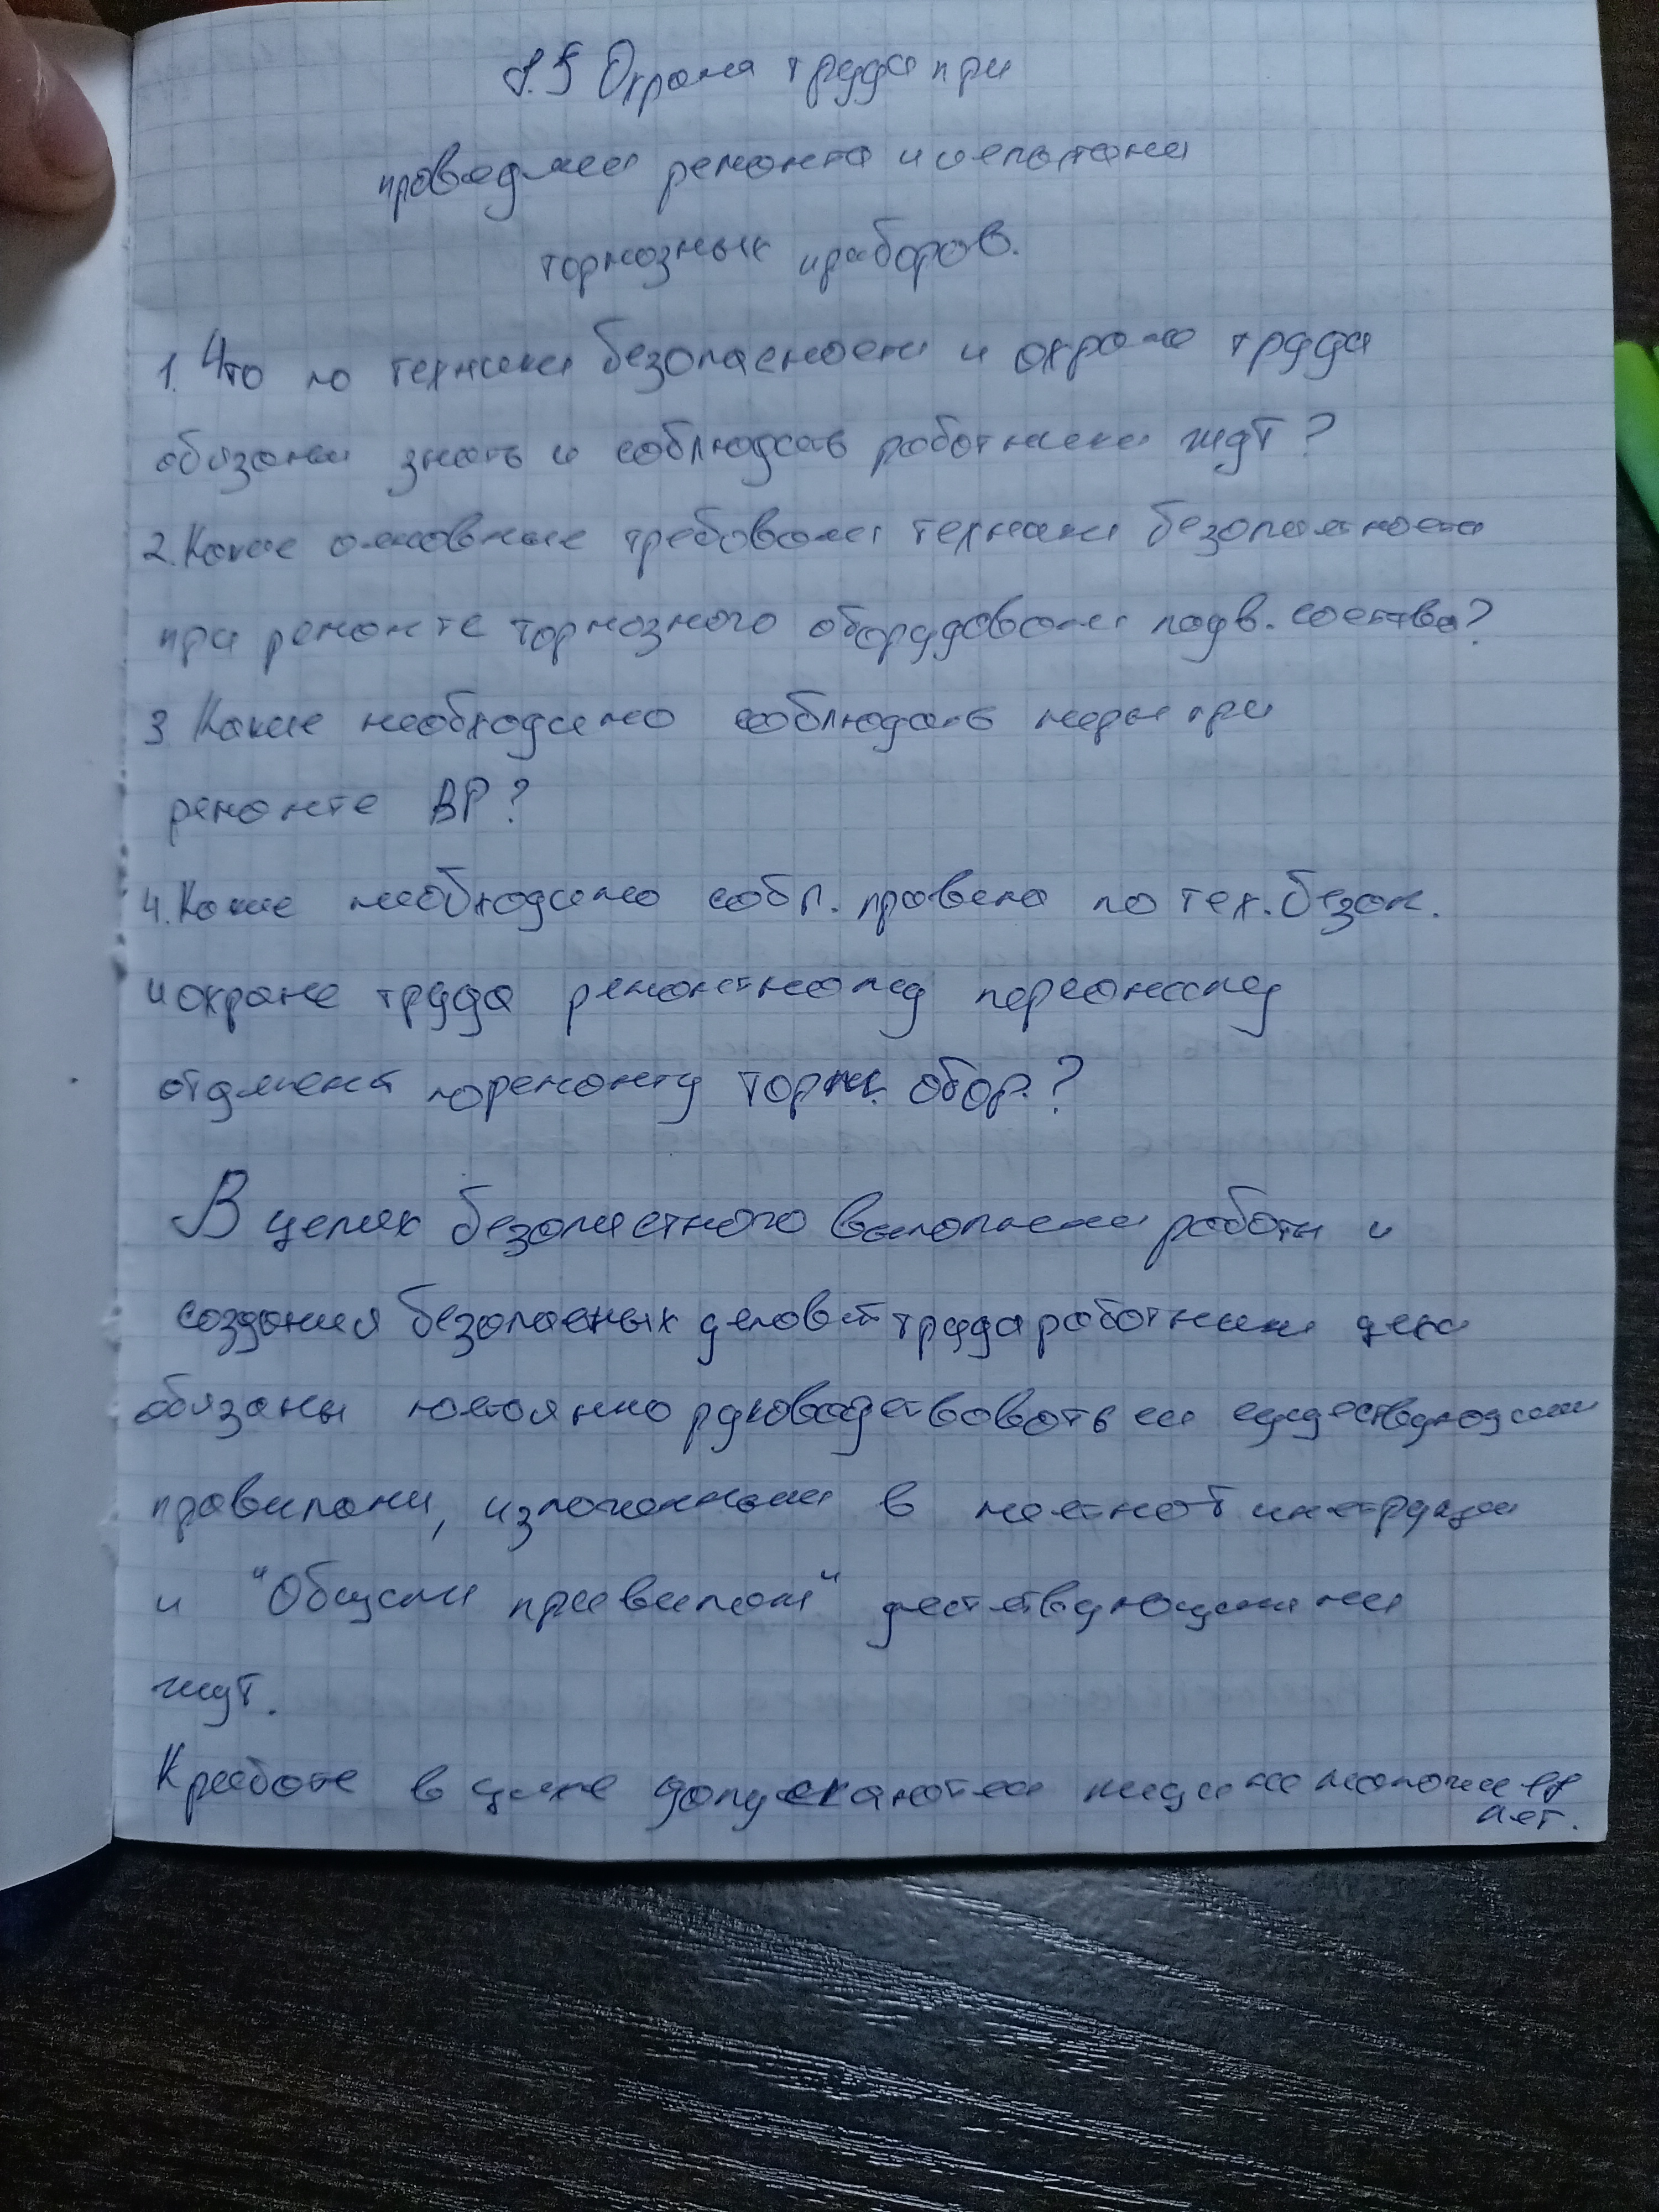 1.5 Охрана труда при
проведении ремонта и испытании
тормозных приборов.
1. Что по техники безопасности и охране труда
обязаны знать и соблюдать работники ждт?
2. Какие основные требования техники безопасности
при ремонте тормозного оборудования подв. состава?
3 Какие необходимо соблюдать меры при
ремонте ВР?
4. Какие необходимо собл. правила по тех. безоп.
и охране труда ремонтному персоналу
отдления по ремонту торм. обор.?
В целях безопастного выполнении работы и
создания безопасных условий труда работники цеха
обязаны постоянно руководствоваться существующими
правилами, изложенными в местной инструкции
и "Общими правилами" действующими на
ждт.
К работе в цехе допускаются лица не моложе 18
лет.